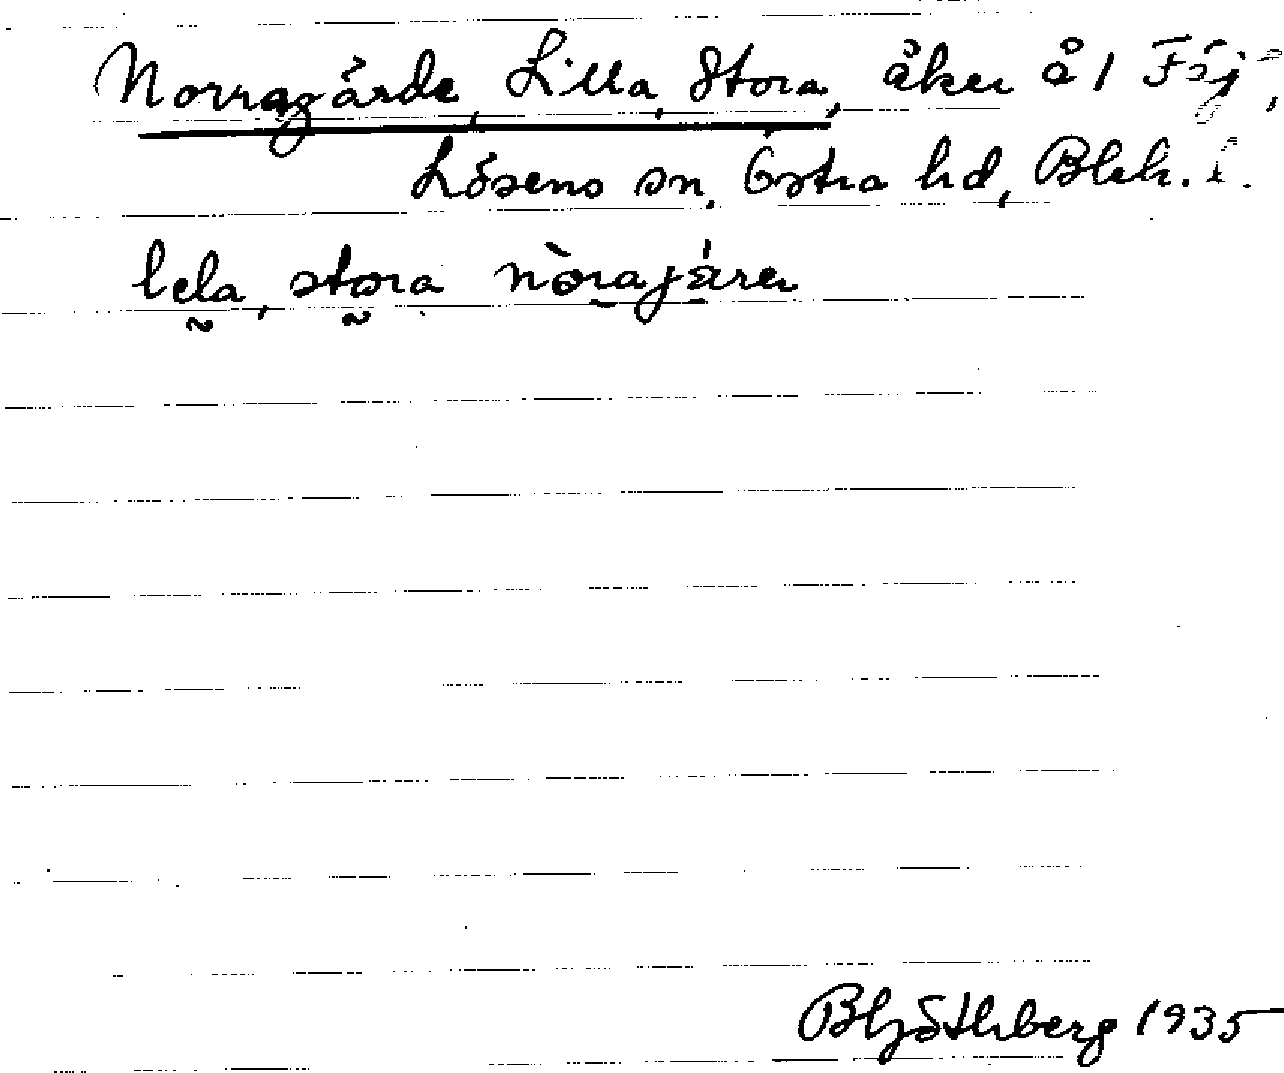 Norragärde, Lilla, Stora, åker å 1 Fäj,
Lösens sn, Östra hd, Blek. l.
lela, stora nòrajáren
BHjöthberg 1935